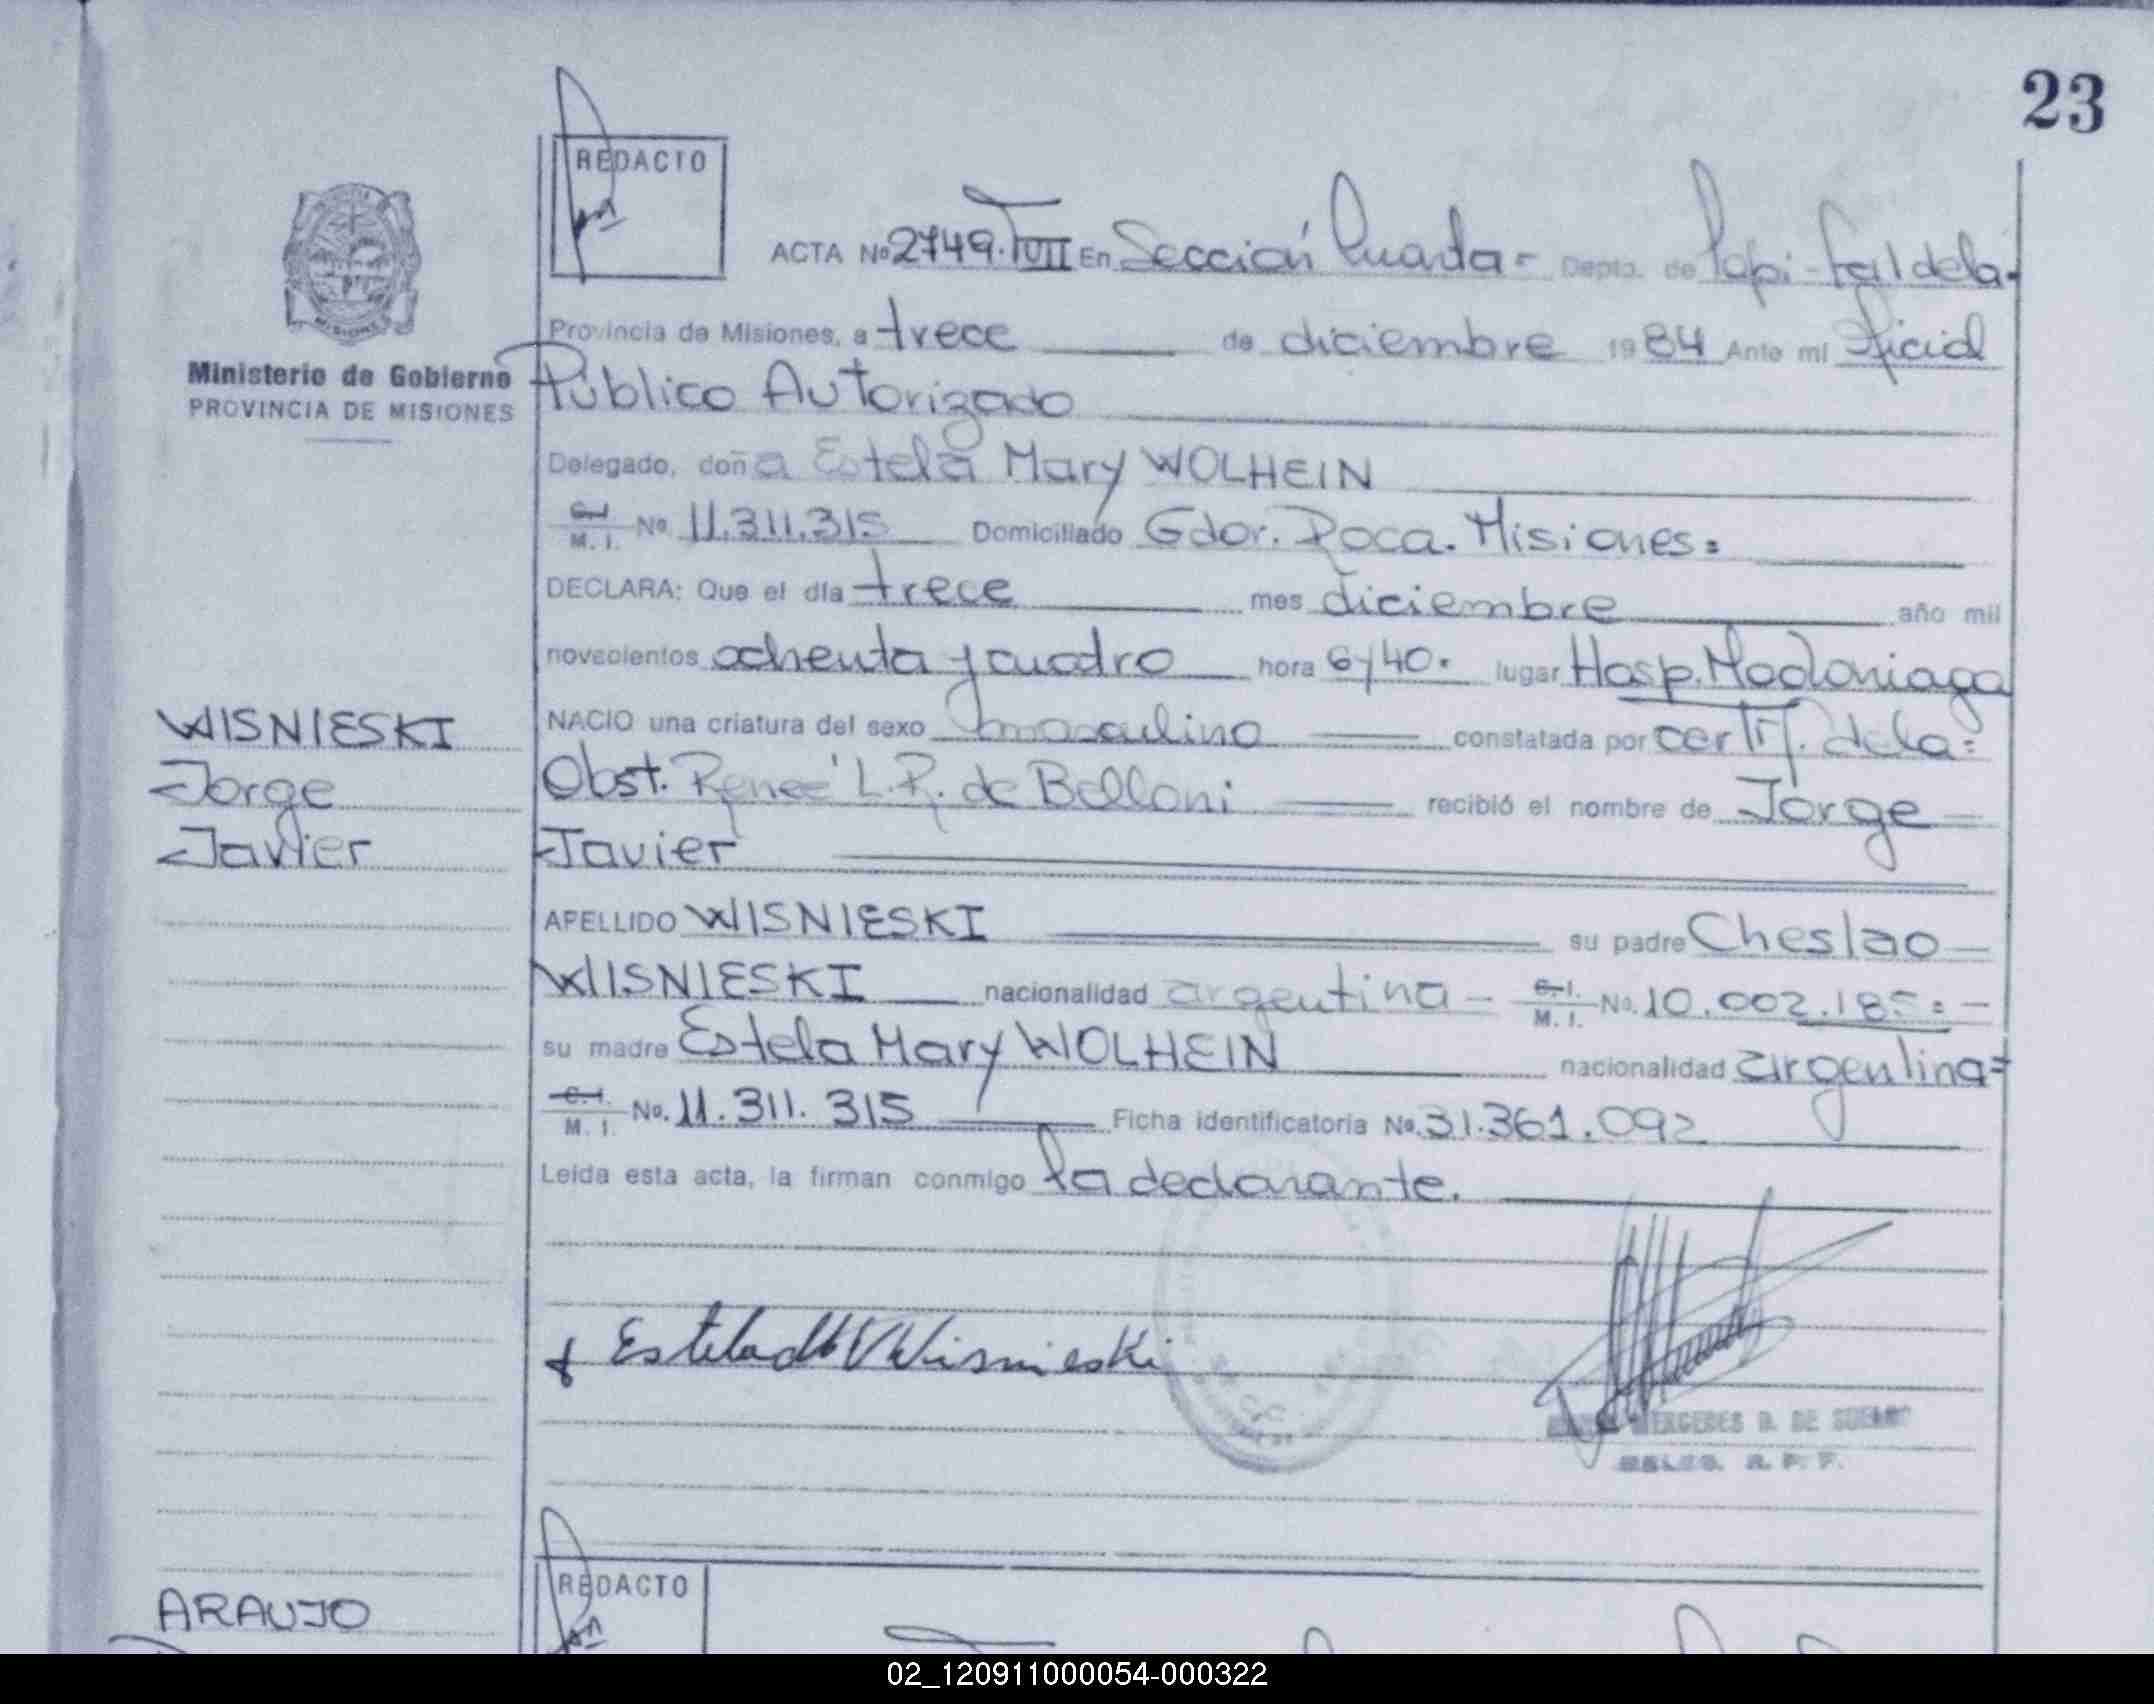 23
REDACTO
ACTA Nº 2749. TVII En Sección Cuarta = Depto. de Capi-tal de la-
Provincia de Misiones, a trece de diciembre 1984 Ante mi Oficial
Ministerio de Gobierno
PROVINCIA DE MISIONES
Público Autorizado
Delegado, doña Estela Mary WOLHEIN
C.I. M. I. Nº 11.311.315 Domiciliado Gdor. Roca. Misiones=
DECLARA: Que el día trece mes diciembre año mil
novecientos ochenta y cuatro hora 6y40. lugar Hosp. Madariaga
WISNIESKI
Jorge
Javier
NACIO una criatura del sexo masculino constatada por certif. de la=
Obst. Reneé L.R. de Belloni recibió el nombre de Jorge
Javier
APELLIDO WISNIESKI su padre Cheslao
WISNIESKI nacionalidad argentina - C.I. M. I. No. 10.002.185=-
su madre Estela Mary WOLHEIN nacionalidad argentina=
C.I. M. I. No. 11.311.315 Ficha identificatoria Nº 31.361.092
Leida esta acta, la firman conmigo la declarante.
Estela de Wisnieski
MERCEDES B. DE
ARAUJO
REDACTO
02_120911000054-000322